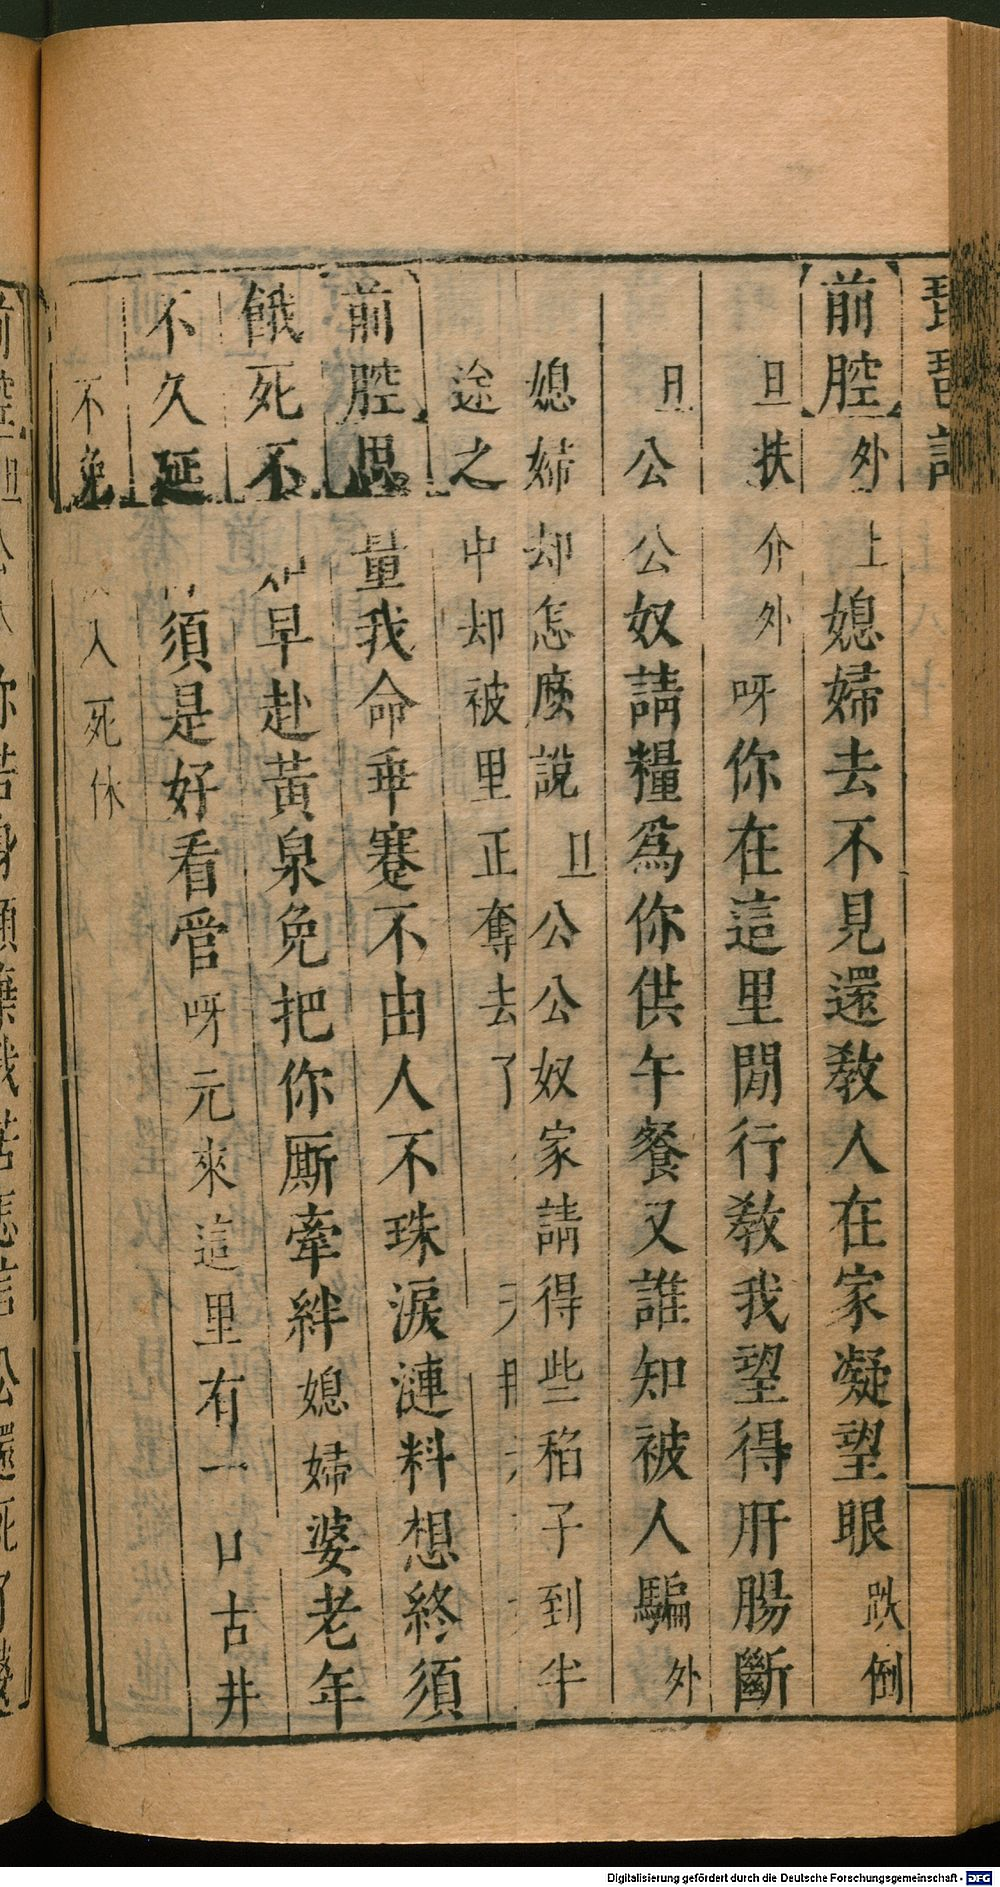 琵琶記
前腔 外上 媳婦去不見還教人在家凝望眼 跌倒
旦扶介 外 呀你在這里閒行教我望得肝腸斷
旦 公公奴請糧爲你供午餐又誰知被人騙 外
媳婦却怎麽說 旦 公公奴家請得些稻子到半
途之中却被里正奪去了
前腔 思量我命乖蹇不由人不珠淚漣料想終須
餓死不如早赴黃泉免把你厮牽絆媳婦婆老年
不久延 須是好看管呀元來這里有一口古井
不免 入死休
Digitalisierung gefördert durch die Deutsche Forschungsgemeinschaft - DFG